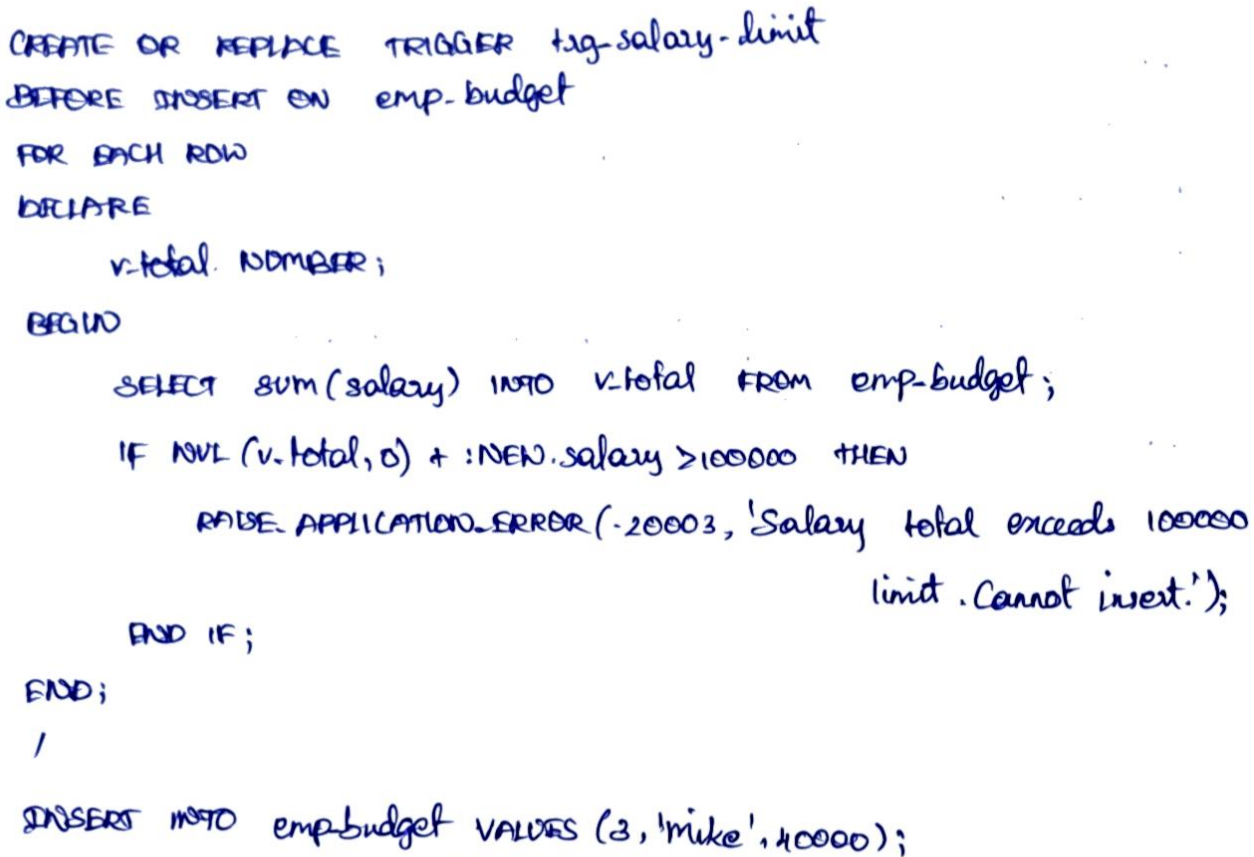 CREATE OR REPLACE TRIGGER trg-salary-limit
BEFORE INSERT ON emp-budget
FOR EACH ROW
DECLARE
v-total NUMBER;
BEGIN
SELECT sum(salary) INTO v-total FROM emp-budget;
IF NVL (v-total, 0) + :NEW.salary >100000 THEN
RAISE_APPLICATION_ERROR(-20003, 'Salary total exceeds 100000
limit. Cannot insert.');
END IF;
END;
/
INSERT INTO emp-budget VALUES (3, 'mike', 40000);